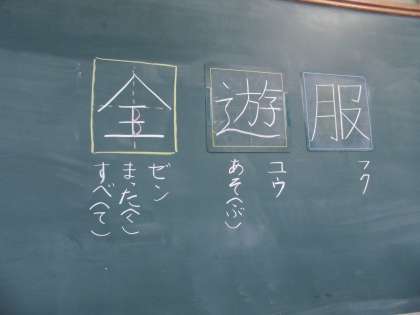 服
フク
遊
ユウ
あそ(ぶ)
全
ゼン
まった(く)
すべ(て)